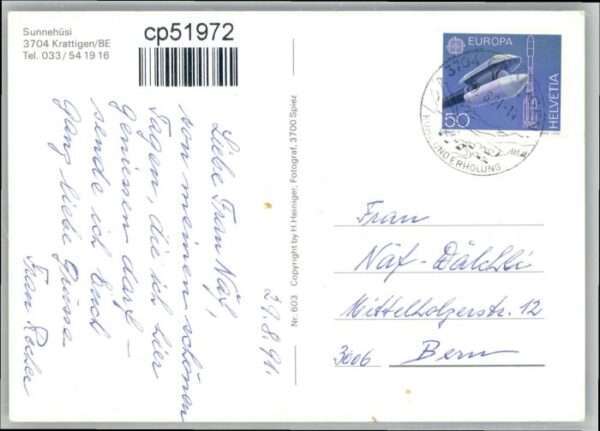 Sunnehüsi
3704 Krattigen/BE
Tel. 033/54 19 16
cp51972
29.8.91.
Liebe Frau Näf,
von meinen schönen
Tagen, die ich hier
geniessen darf –
sende ich Euch
ganz liebe Grüsse
Frau
Nr. 603 Copyright by H. Heiniger, Fotograf, 3700 Spiez
EUROPA
50
HELVETIA
3704
UND ERHOLUNG
Frau
Näf-Dälchli
Mittelholzerstr. 12
3006 Bern